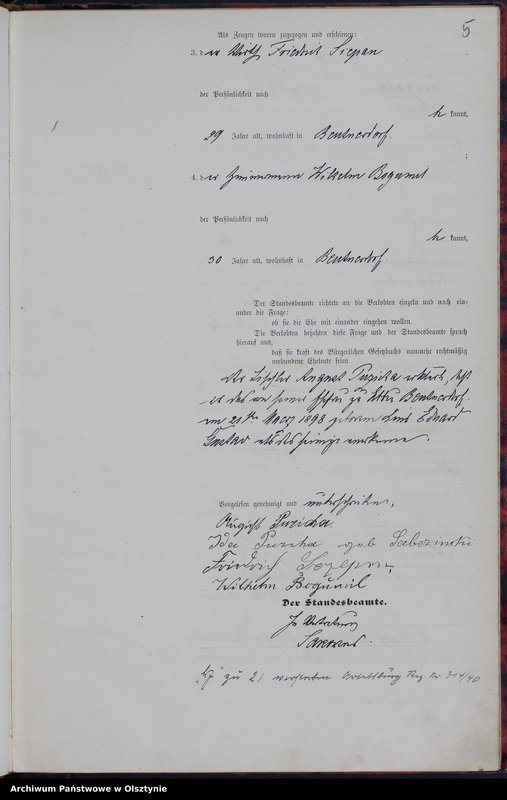 5
Als Zeugen waren zugezogen und erschienen:
3. der Wirth Friedrich Sczepan
der Persönlichkeit nach
kannt,
29 Jahre alt, wohnhaft in Beutnerdorf
;
4. der Zimmermann Wilhelm Bogumil
der Persönlichkeit nach
kannt,
30 Jahre alt, wohnhaft in Beutnerdorf.
Der Standesbeamte richtete an die Verlobten einzeln und nach ein-
ander die Frage:
ob sie die Ehe mit einander eingehen wollen.
Die Verlobten bejahten diese Frage und der Standesbeamte sprach
hierauf aus,
daß sie kraft des Bürgerlichen Gesetzbuchs nunmehr rechtmäßig
verbundene Eheleute seien
Der Tischler August Puzicha erklärt, daß
er das von seiner Ehefrau zu Beutnerdorf
am 21ten März 1898 geborene Kind Eduard
Gustav als das seinige anerkenne.
Vorgelesen genehmigt und unterschrieben.
August Puzicha
Ida Puzicha geb
Friedrich Sczepan
Wilhelm Bogumil
Der Standesbeamte.
In Vertretung
zu 2) verstorben Ortelsburg Reg. Nr. 314/40
Archiwum Państwowe w Olsztynie